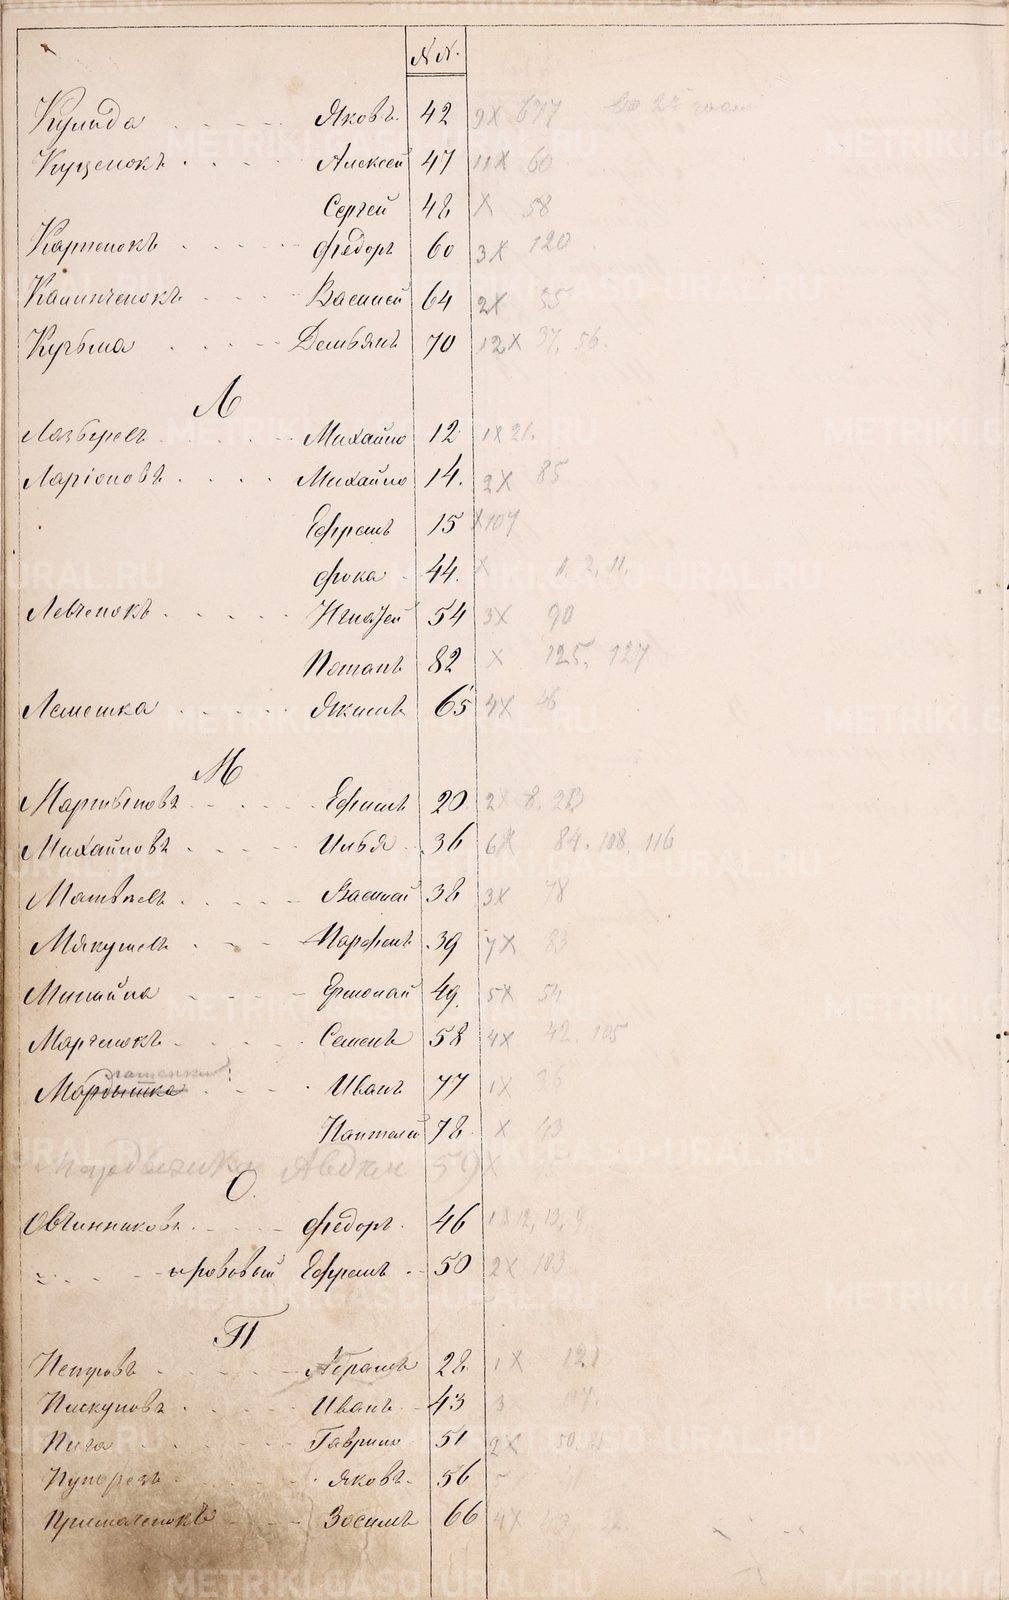 № №.
Кулида Яковъ. 42 9X 677
Куценокъ Алексей 47 11X 60
Сергей 48 X 58
Карпенокъ Федоръ 60 3X 120
Калинченокъ Василей 64 2X 55
Кузьма Демьянъ 70 12X 37, 56.
Л
Михайло 12 1X 21.
Ларіоновъ Михайло 14. 2X 85
Ефремъ 15 X 107
Фока 44. X 1, 2, 11.
Левченокъ Игнатей 54 3X 90
Потапъ 82 X 125, 127
Лемешка Якимъ 65 4X
М
Мартыновъ Ефимъ 20 2X 8,
Михайловъ Илья 36 6X 84, 108, 116
Матвѣевъ Василей 38 3X 78
Мякушевъ Парфенъ 39 7X 83
Минайла Ермолай 49. 5X 54
Марченокъ Семенъ 58 4X 42, 105
Мордышка Иванъ 77 1X
Пантелей 78 X 43
Авдей 59 X
О.
Овчинниковъ Федоръ. 46 12, 13, 9.
Ефремъ 50 2X 103
П
Петровъ Абрамъ 28 1X 121
Пискуновъ Иванъ 43 3
Пига Гаврило 51 2X 50,
Яковъ 56
Зосимъ 66 4X
METRIKI.GASO-URAL.RU